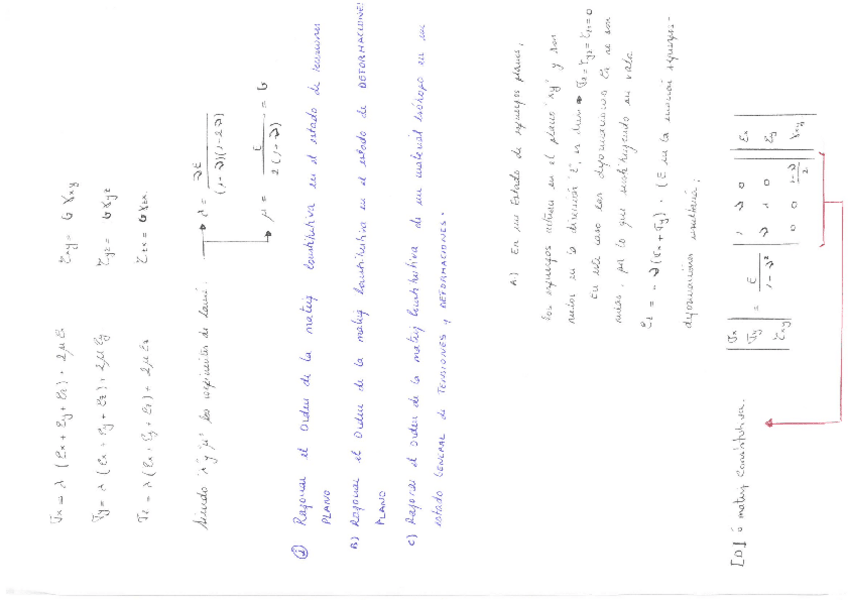 σx = λ (εx + εy + εz) + 2μ εx    τxy = G γxy
σy = λ (εx + εy + εz) + 2μ εy    τyz = G γyz
σz = λ (εx + εy + εz) + 2μ εz    τzx = G γzx
Siendo "λ" y "μ" los coeficientes de Lamé: λ = νE / (1-ν)(1-2ν)
μ = E / 2(1-ν) = G
② Razonar el orden de la matriz constitutiva en el estado de tensiones
PLANO
B) Razonar el orden de la matriz constitutiva en el estado de DEFORMACIONES
PLANO
C) Razonar el orden de la matriz constitutiva de un material isótropo en un
estado GENERAL de TENSIONES y DEFORMACIONES.
A) En un Estado de esfuerzos planos,
los esfuerzos actúan en el plano "xy" y son
nulos en la dirección "z", es decir σz = τyz = τzx = 0
En este caso las deformaciones εz no son
nulas, por lo que sustituyendo su valor
εz = - ν (σx + σy) · 1/E en la ecuación esfuerzo-
deformación resultará:
|σx σy τxy| = E / 1-ν² |1 ν 0 ν 1 0 0 0 1-ν/2| |εx εy γxy|
[D] ≡ matriz constitutiva.